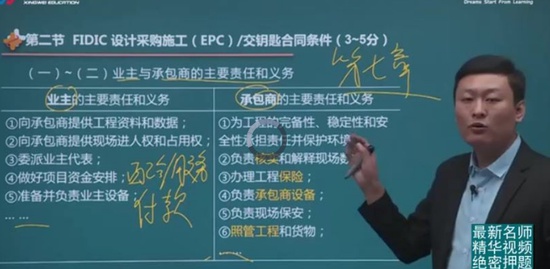 XINGWEI EDUCATION
Dreams Start From Learning
第二节 FIDIC 设计采购施工（EPC）/交钥匙合同条件（3~5分）
（一）~（二）业主与承包商的主要责任和义务
第七章
业主的主要责任和义务
①向承包商提供工程资料和数据；
②向承包商提供现场进入权和占用权；
③委派业主代表；
④做好项目资金安排；
⑤准备并负责业主设备
... ...
付款
承包商的主要责任和义务
①为工程的完备性、稳定性和安
全性承担责任并保护环境
②负责核实和解释现场数
③办理工程保险；
④负责承包商设备；
⑤负责现场保安；
⑥照管工程和货物；
... ...
最新名师
精华视频
绝密押题